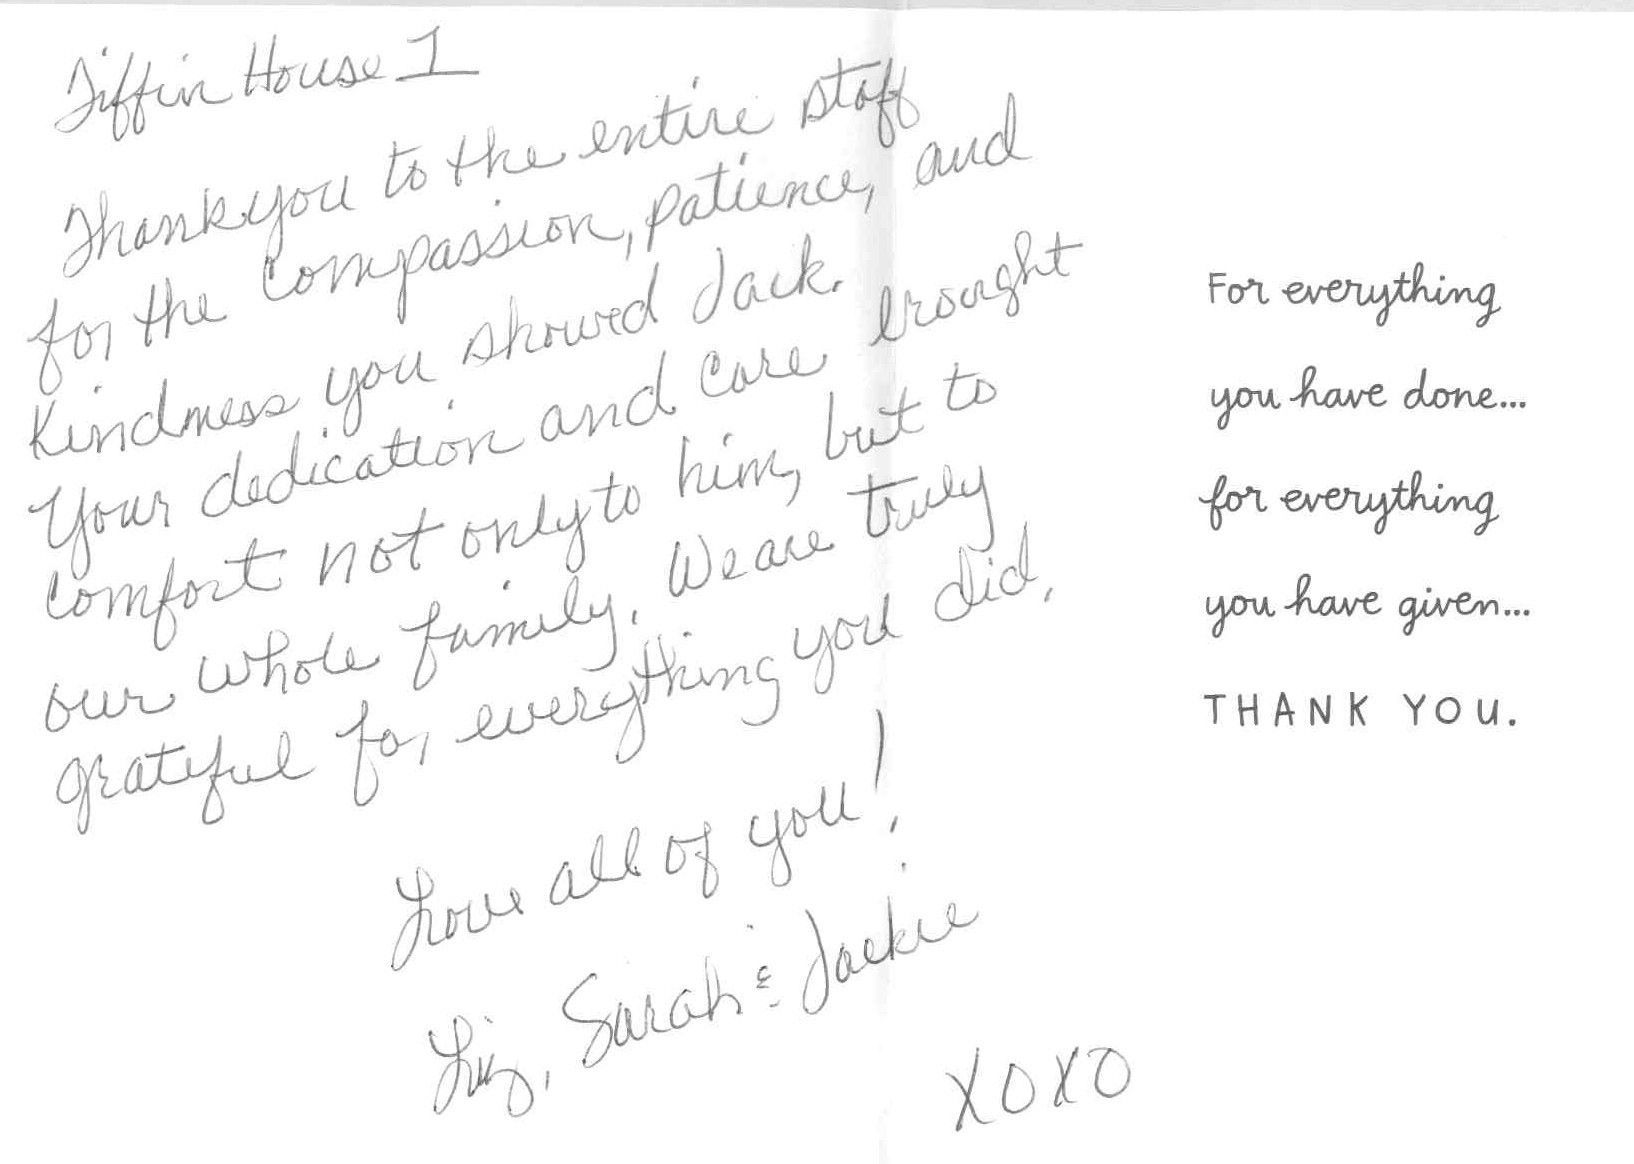 Tiffin House 1
Thank you to the entire staff
for the compassion, patience, and
kindness you showed Jack.
Your dedication and care brought
comfort not only to him, but to
our whole family. We are truly
grateful for everything you did.
Love all of you!
Liz, Sarah & Jackie
XOXO
For everything
you have done...
for everything
you have given...
THANK YOU.